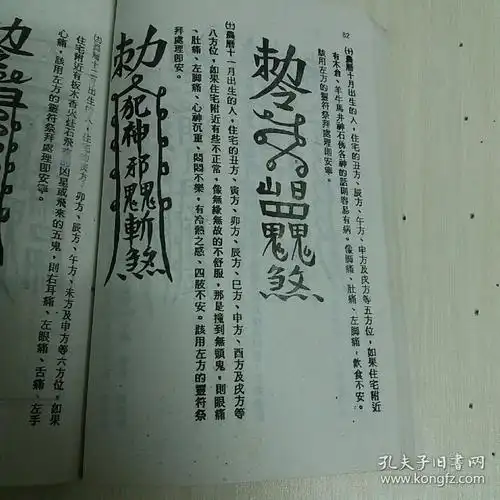 82
㈩農曆十月出生的人，住宅的丑方、辰方、午方、申方及戌方等五方位，如果住宅附近
有木倉、羊牛馬井神石佛各神的話則容易有病。像脚痛、肚痛、左脚痛，飲食不安。
該用左方的靈符祭拜處理即安寧。
勅令
㈩農曆十一月出生的人，住宅的丑方、寅方、卯方、辰方、巳方、申方、酉方及戌方等
八方位，如果住宅附近有些不正常，像無緣無故的不舒服，那是撞到無頭鬼，則眼痛
、肚痛、左脚痛、心神沉重、悶悶不樂，有冷熱之感、四肢不安。該用左方的靈符祭
拜處理即安。
勅令死神邪鬼斬煞
農曆十二月出生的人，住宅的 卯方、辰方、午方、未方及申方等六方位，如果
住宅附近有板木香火柱石飛來的凶星或飛來的五鬼，則右耳痛、左眼痛、舌痛、左手
心痛，該用左方的靈符祭拜處理即安寧。
孔夫子旧書网
www.kongfz.com